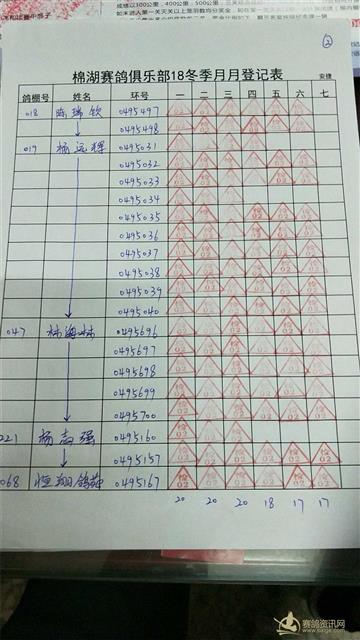 ②
棉湖赛鸽俱乐部18冬季月月登记表 安捷
鸽棚号 姓名 环号 一 二 三 四 五 六 七
018 陈瑞钦 0495497
0495498
019 杨远辉 0495031
0495032
0495033
0495034
0495035
0495036
0495037
0495038
0495039
0495040
047 林海林 0495696
0495697
0495698
0495699
0495700
221 杨志强 0495160
0495157
068 恒翔鸽舍 0495167
20 20 20 18 17 17
赛鸽资讯网